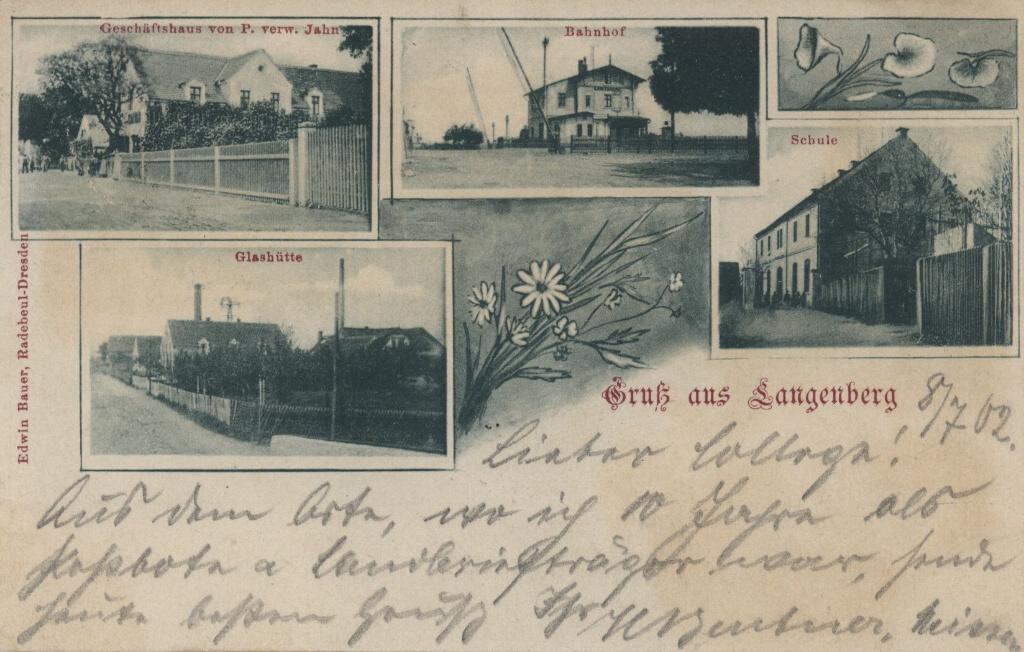 Geschäftshaus von P. verw. Jahn
Bahnhof
Schule
Glashütte
Edwin Bauer, Radebeul-Dresden
Gruß aus Langenberg
8/7 02.
Lieber College!
Aus dem Orte, wo ich 10 Jahre als
Postbote u Landbriefträger war, sende
heute besten Gruß Ihr